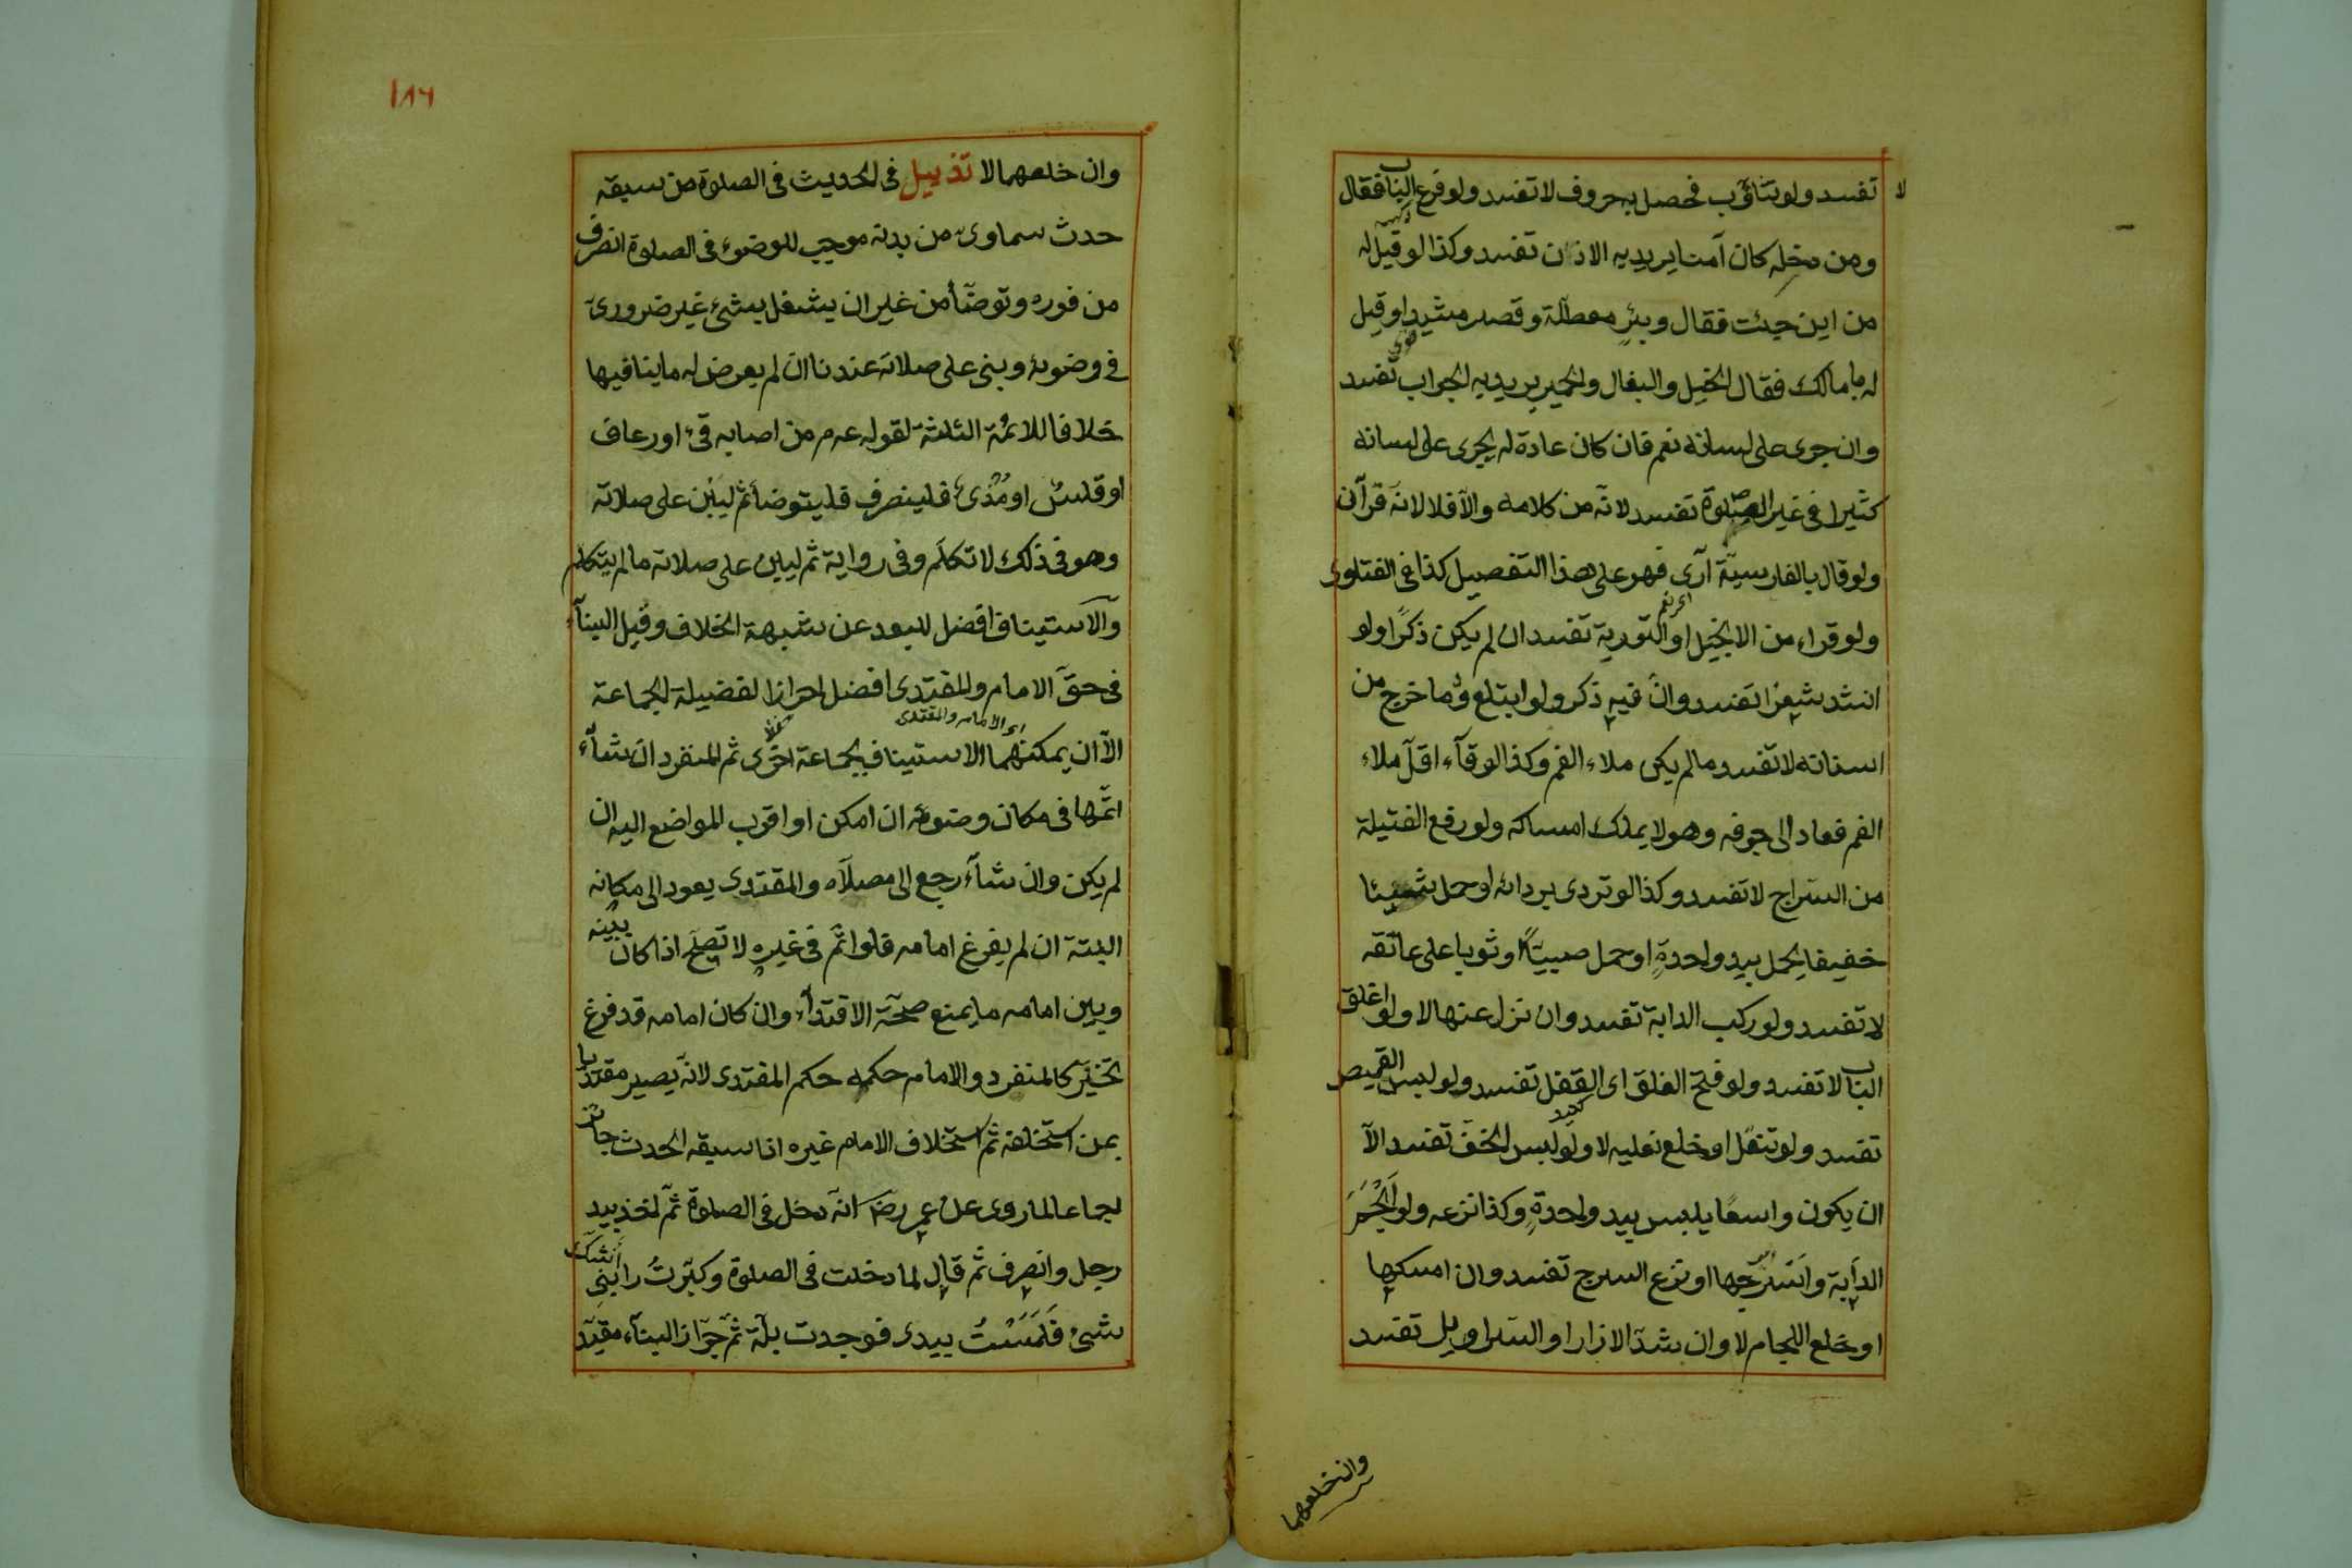 لا تفسد ولو تثاؤب فحصل به حروف لا تفسد ولو قرع الباب فقال
ومن دخله كان آمنا يريد به الاذن تفسد وكذا لو قيل له
من اين جئت فقال وبئر معطلة وقصر مشيد او قيل
له ما مالك فقال الخيل والبغال والحمير يريد به الجواب تفسد
وان جرى على لسانه نعم فان كان عادة له يجرى على لسانه
كثيرا فى غير الصلوة تفسد لانه من كلامه والا فلا لانه قرآن
ولو قال بالفارسية آرى فهو على هذا التفصيل كذا فى الفتاوى
اى نعم
ولو قراء من الانجيل او التورية تفسد ان لم يكن ذكرا ولو
انشد شعرا تفسد وان فيه ذكر ولو ابتلع دما خرج من
اسنانه لا تفسد ما لم يكن ملاء الفم وكذا لو قآء اقل ملاء
الفم فعاد الى جوفه وهو لا يملك امساكه ولو رفع الفتيلة
من السراج لا تفسد وكذا لو تردى بردائه او حمل شيئا
خفيفا يحمل بيد واحدة او حمل صبيا او ثوبا على عاتقه
لا تفسد ولو ركب الدابة تفسد وان نزل عنها لا ولو اغلق
الباب لا تفسد ولو فتح الغلق اى القفل تفسد ولو لبس القميص
تفسد ولو تنعل او خلع نعليه لا ولو لبس الخف تفسد الا
ان يكون واسعا يلبس بيد واحدة وكذا نزعه ولو الجم
الدابة واسرجها او نزع السرج تفسد وان امسكها
او خلع اللجام لا وان شد الازار او السراويل تفسد
وان خلعهما
١٨٦
وان خلعهما لا تذييل فى الحديث فى الصلوة من سبقه
حدث سماوى من بدنه موجب للوضوء فى الصلوة انصرف
من فوره وتوضأ من غير ان يشغل بشئ غير ضرورى
فى وضوئه وبنى على صلاته عندنا ان لم يعرض له ما ينافيها
خلافا للائمة الثلثة لقوله عم من اصابه قئ او رعاف
او قلس او مذى فلينصرف فليتوضأ ثم ليبن على صلاته
وهو فى ذلك لا تكلم وفى رواية ثم ليبن على صلاته ما لم يتكلم
والاستيناف افضل للبعد عن شبهة الخلاف وقيل البنآء
فى حق الامام والمقتدى افضل احرازا لفضيلة الجماعة
اى الامام والمقتدى
الا ان يمكنهما الاستيناف بجماعة اخرى ثم المنفرد ان شآء
اتمها فى مكان وضوئه ان امكن او اقرب المواضع اليه ان
لم يكن وان شآء رجع الى مصلاه والمقتدى يعود الى مكانه
البتة ان لم يفرغ امامه فلو اتم فى غيره لا تصح اذا كان بينه
وبين امامه ما يمنع صحة الاقتدآء وان كان امامه قد فرغ
تخير كالمنفرد والامام حكمه حكم المقتدى لانه يصير مقتديا
بمن استخلفه ثم استخلاف الامام غيره اذا سبقه الحدث جائز
اجماعا لما روى عن عمر رض انه دخل فى الصلوة ثم اخذ بيد
رجل وانصرف ثم قال لما دخلت فى الصلوة وكبرت رابنى
شئ فلمست بيدى فوجدت بلة ثم جواز البنآء مقيد